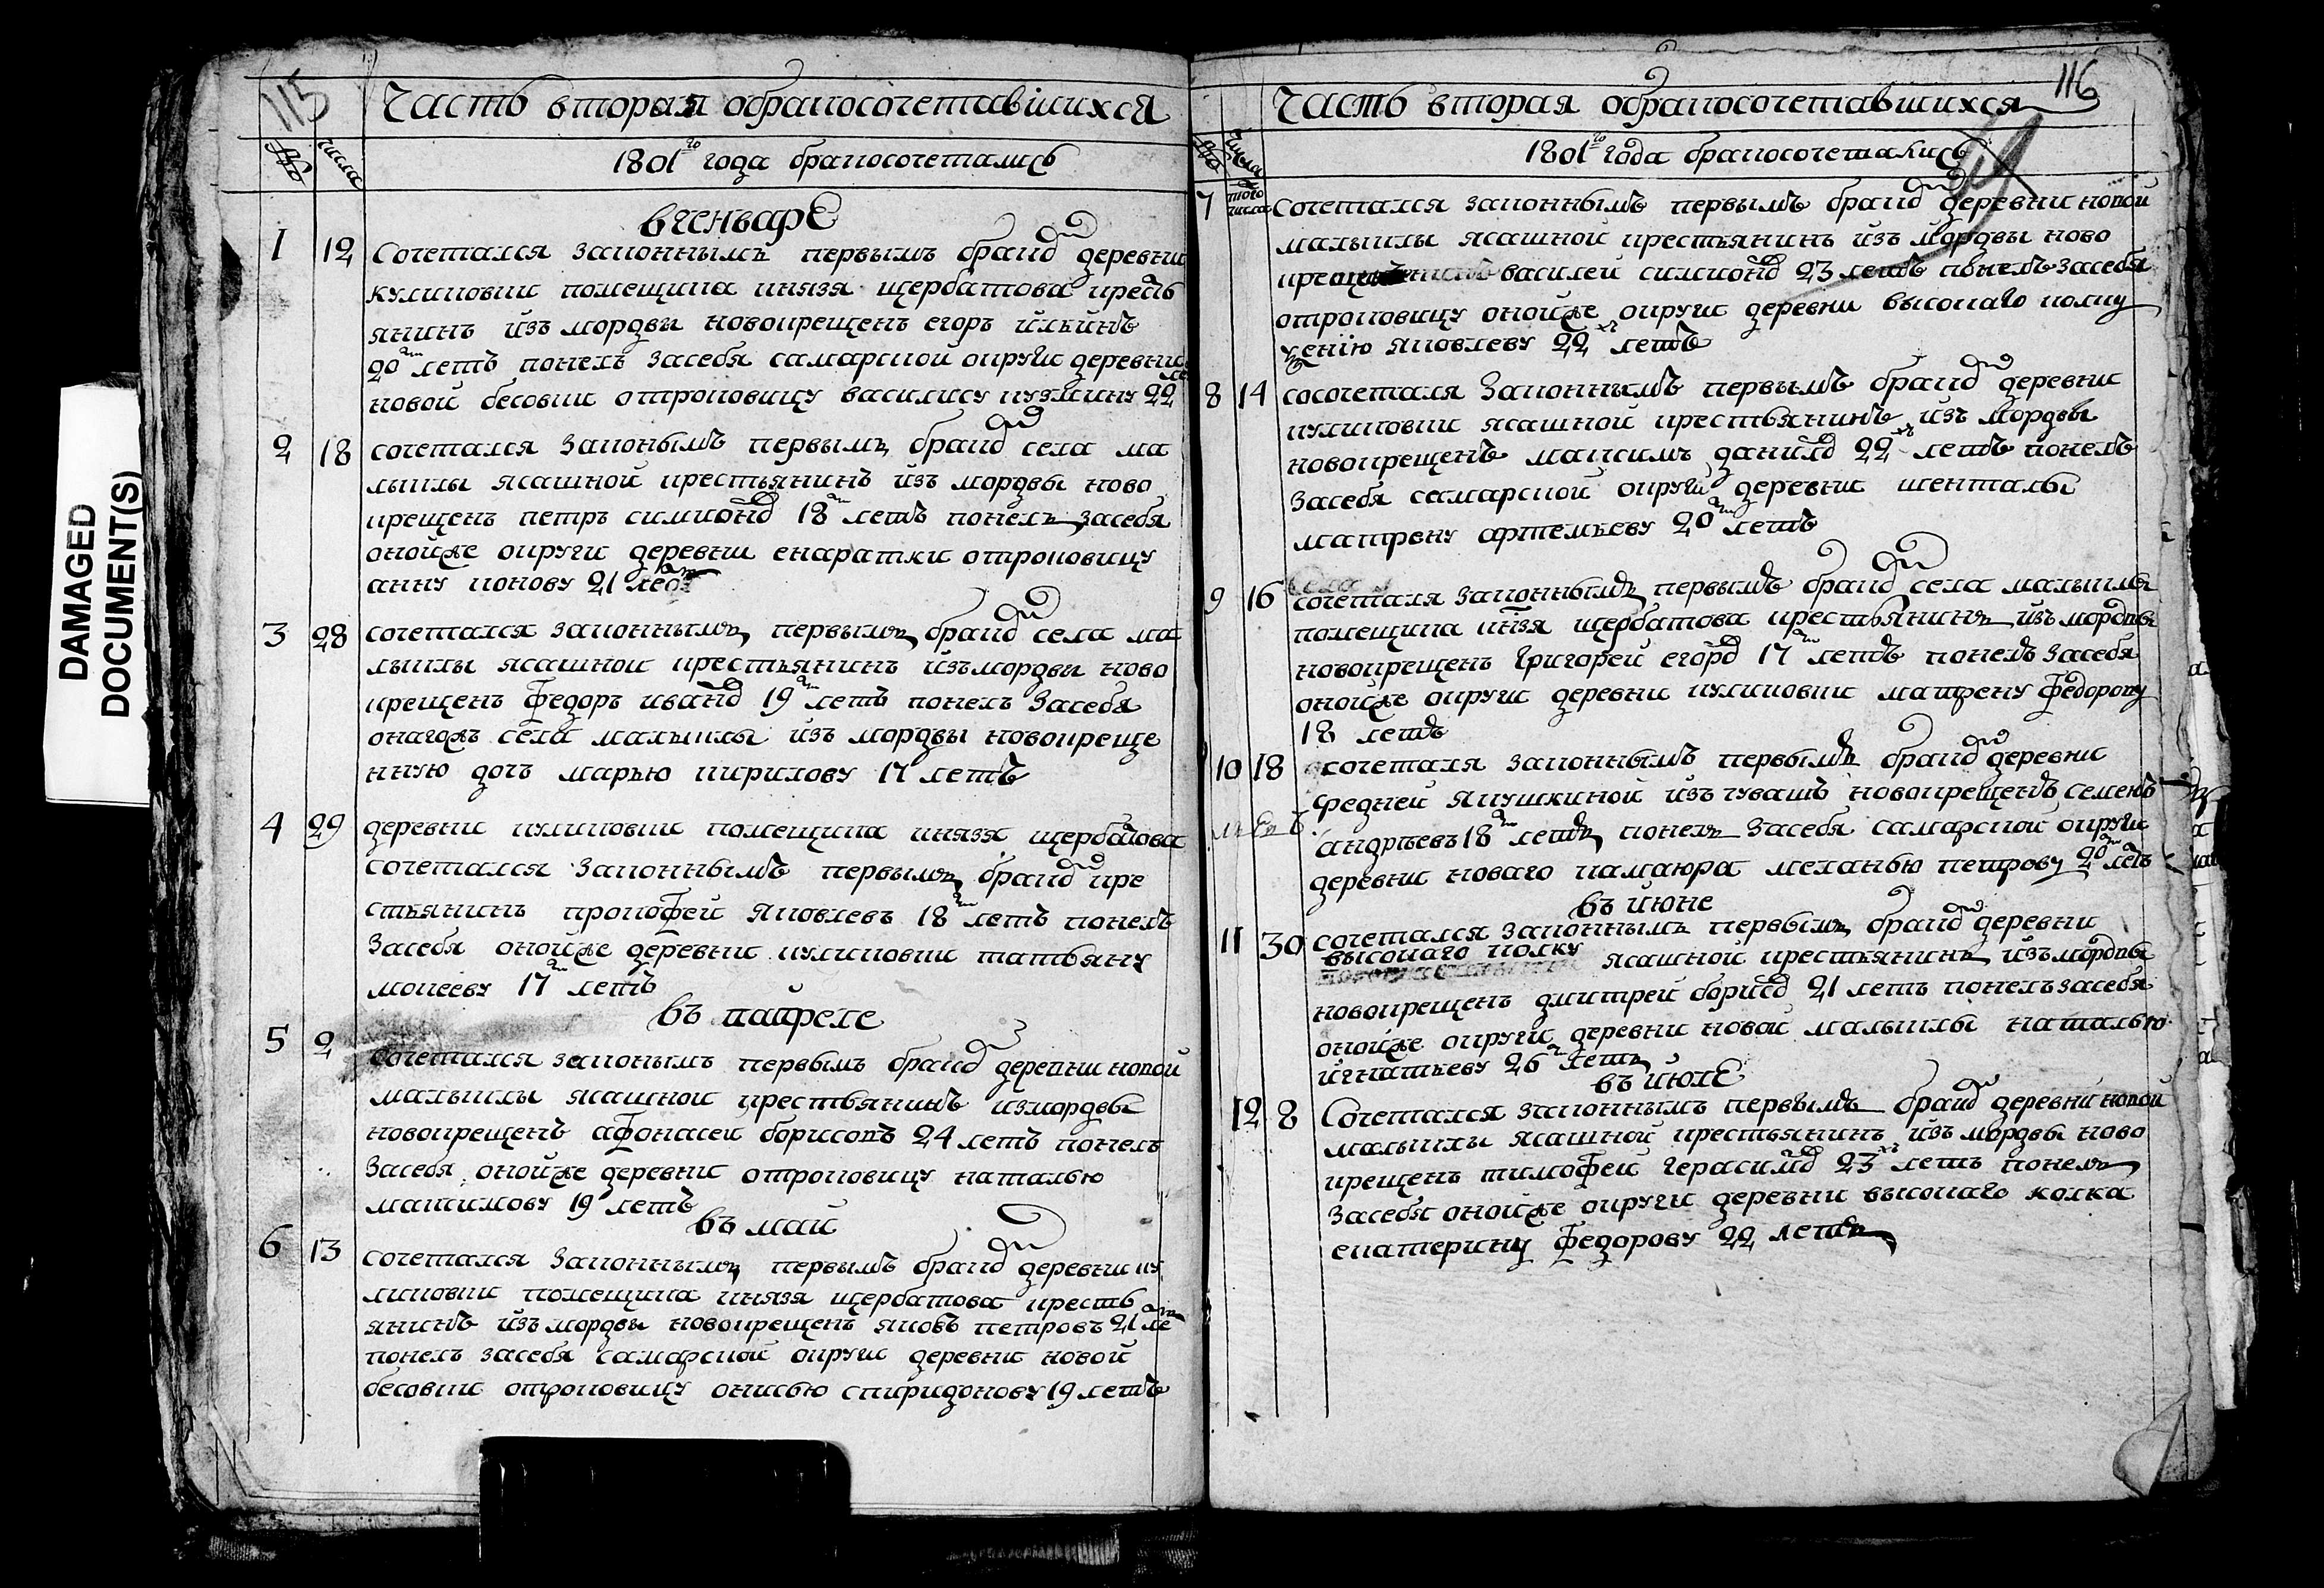 DAMAGED
DOCUMENT(S)
115
Часть вторая обракосочетавшихся
№ числа
1801го года бракосочетались
вгенваре
1 12 Сочетался законнымъ первымъ бракомъ деревни
куликовки помещика князя щербатова кресть
янинъ изъ мордвы новокрещенъ егоръ ильинъ
20ти летъ понелъ засебя самарской округи деревни
новой бесовки отроковицу василису кузмину 22 ле
2 18 сочетался законымъ первымъ бракомъ села ма
лыклы ясашной крестьянинъ изъ мордвы ново
крещенъ петръ симионовъ 18ти летъ понелъ засебя
онойже округи деревни енаратки отроковицу
анну конову 21 летъ
3 28 сочетался законнымъ первымъ бракомъ села ма
лыклы ясашной крестьянинъ изъ мордвы ново
крещенъ федоръ ивановъ 19ти летъ понелъ засебя
онагожъ села малыклы изъ мордвы новокреще
нную дочь марью кирилову 17 летъ
4 29 деревни куликовки помещика князя щербатова
сочетался законнымъ первымъ бракомъ кре
стьянинъ прокофей яковлевъ 18ти летъ понелъ
засебя онойже деревни куликовки татьяну
мокееву 17ти летъ
въ апреле
5 2 Сочетался законымъ первымъ бракомъ деревни новой
малыклы ясашной крестьянинъ измордвы
новокрещенъ афонасеи борисовъ 24 летъ понелъ
засебя онойже деревни отроковицу наталью
макимову 19 летъ
въ маи
6 13 сочетался законнымъ первымъ бракомъ деревни ку
ликовки помещика князя щербатова кресть
янинъ изъ мордвы новокрещенъ яковъ петровъ 21 ле
понелъ засебя самарской округи деревни новой
бесовки отроковицу онисью спиридонову 19 летъ
116
Часть вторая обракосочетавшихся
№ числа
1801го года бракосочетались
7 того числа Сочетался законнымъ первымъ бракомъ деревни новой
малыклы ясашной крестьянинъ изъ мордвы ново
василеи симионовъ 23 летъ понелъ засебя
отроковицу онойже округи деревни высокаго колку
ксению яковлеву 22хъ летъ
8 14 сосочеталя законнымъ первымъ бракомъ деревни
куликовки ясашной крестьянинъ изъ мордвы
новокрещенъ максимъ даниловъ 22хъ летъ понелъ
засебя самарской округи деревни шенталы
матрену артемьеву 20ти летъ
9 16 сочеталя законнымъ первымъ бракомъ села малыклы
помещика кнзя щербатова крестьянинъ изъ мордвы
новокрещенъ григореи егоровъ 17ти летъ понелъ засебя
онойже округи деревни куликовки матрену федорову
18 летъ
10 18 сочеталя законнымъ первымъ бракомъ деревни
средней якушкиной изъ чувашъ новокрещенъ семенъ
андрьевъ 18ти летъ понелъ засебя самарской округи
деревни новаго камаюра меланью петрову 20ти летъ
въ июне
11 30 сочетался законнымъ первымъ бракомъ деревни
высокаго колку ясашной крестьянинъ изъ мордвы
новокрещенъ дмитреи борисовъ 21 летъ понелъ засебя
онойже округи деревни новой малыклы наталью
игнатьеву 26 летъ
въ июле
12 8 Сочетался законнымъ первымъ бракомъ деревни новой
малыклы ясашной крестьянинъ изъ мордвы ново
крещенъ тимофеи герасимовъ 23хъ летъ понелъ
засебя онойже округи деревни высокаго колка
екатерину федорову 22 летъ